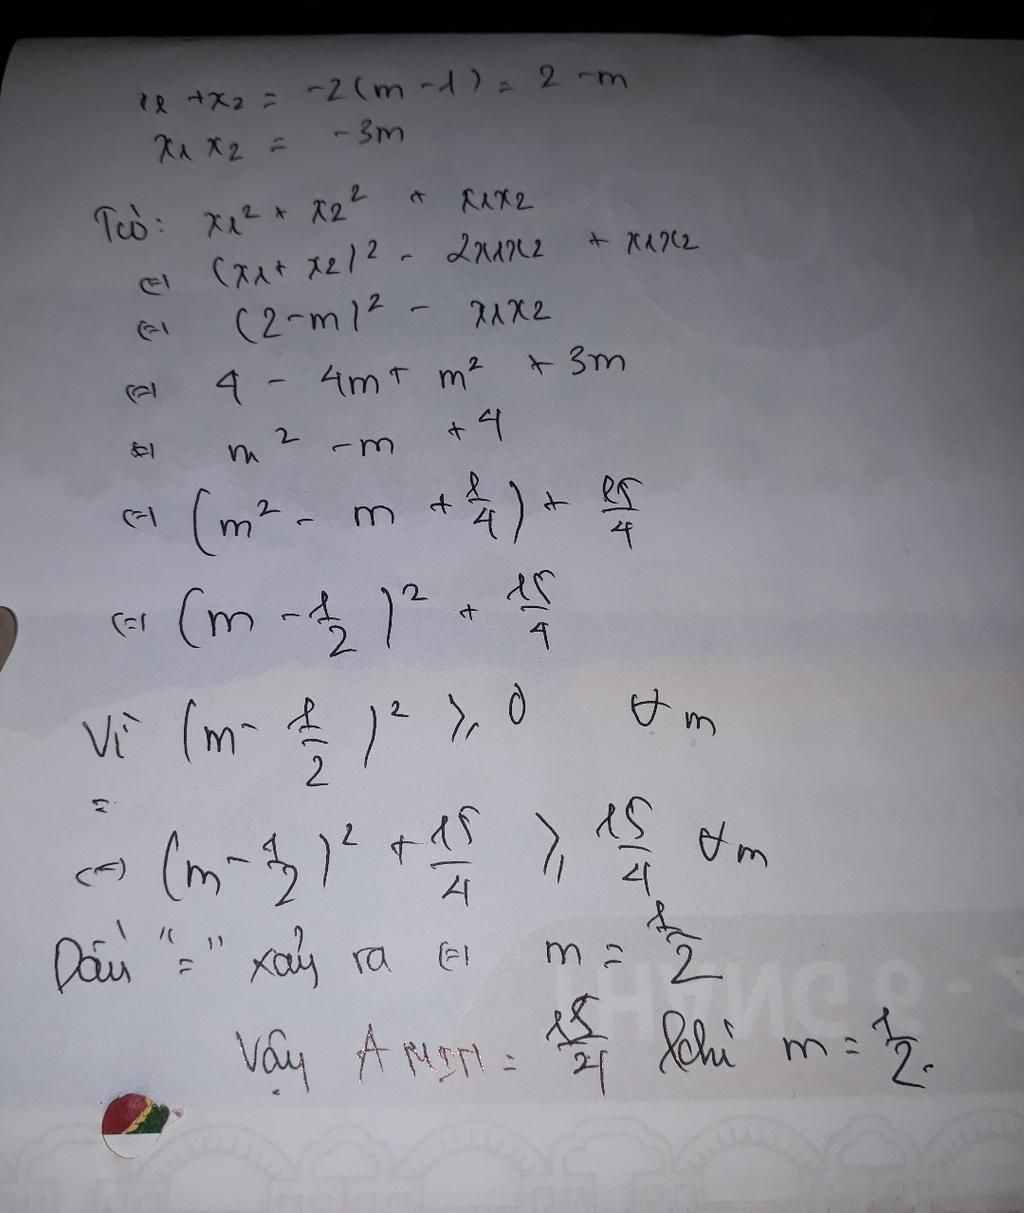 x1 + x2 = -2(m-1) = 2-m
x1 x2 = -3m
Tcó: x1² + x2² + x1x2
(=) (x1 + x2)² - 2x1x2 + x1x2
(=) (2-m)² - x1x2
(=) 4 - 4m + m² + 3m
(=) m² - m + 4
(=) (m² - m + 1/4) + 15/4
(=) (m - 1/2)² + 15/4
Vì (m - 1/2)² ≥ 0 ∀m
=
(=) (m - 1/2)² + 15/4 ≥ 15/4 ∀m
Dấu "=" xảy ra (=) m = 1/2
Vậy A MIN = 15/4 khi m = 1/2.
THÁNG 6 -